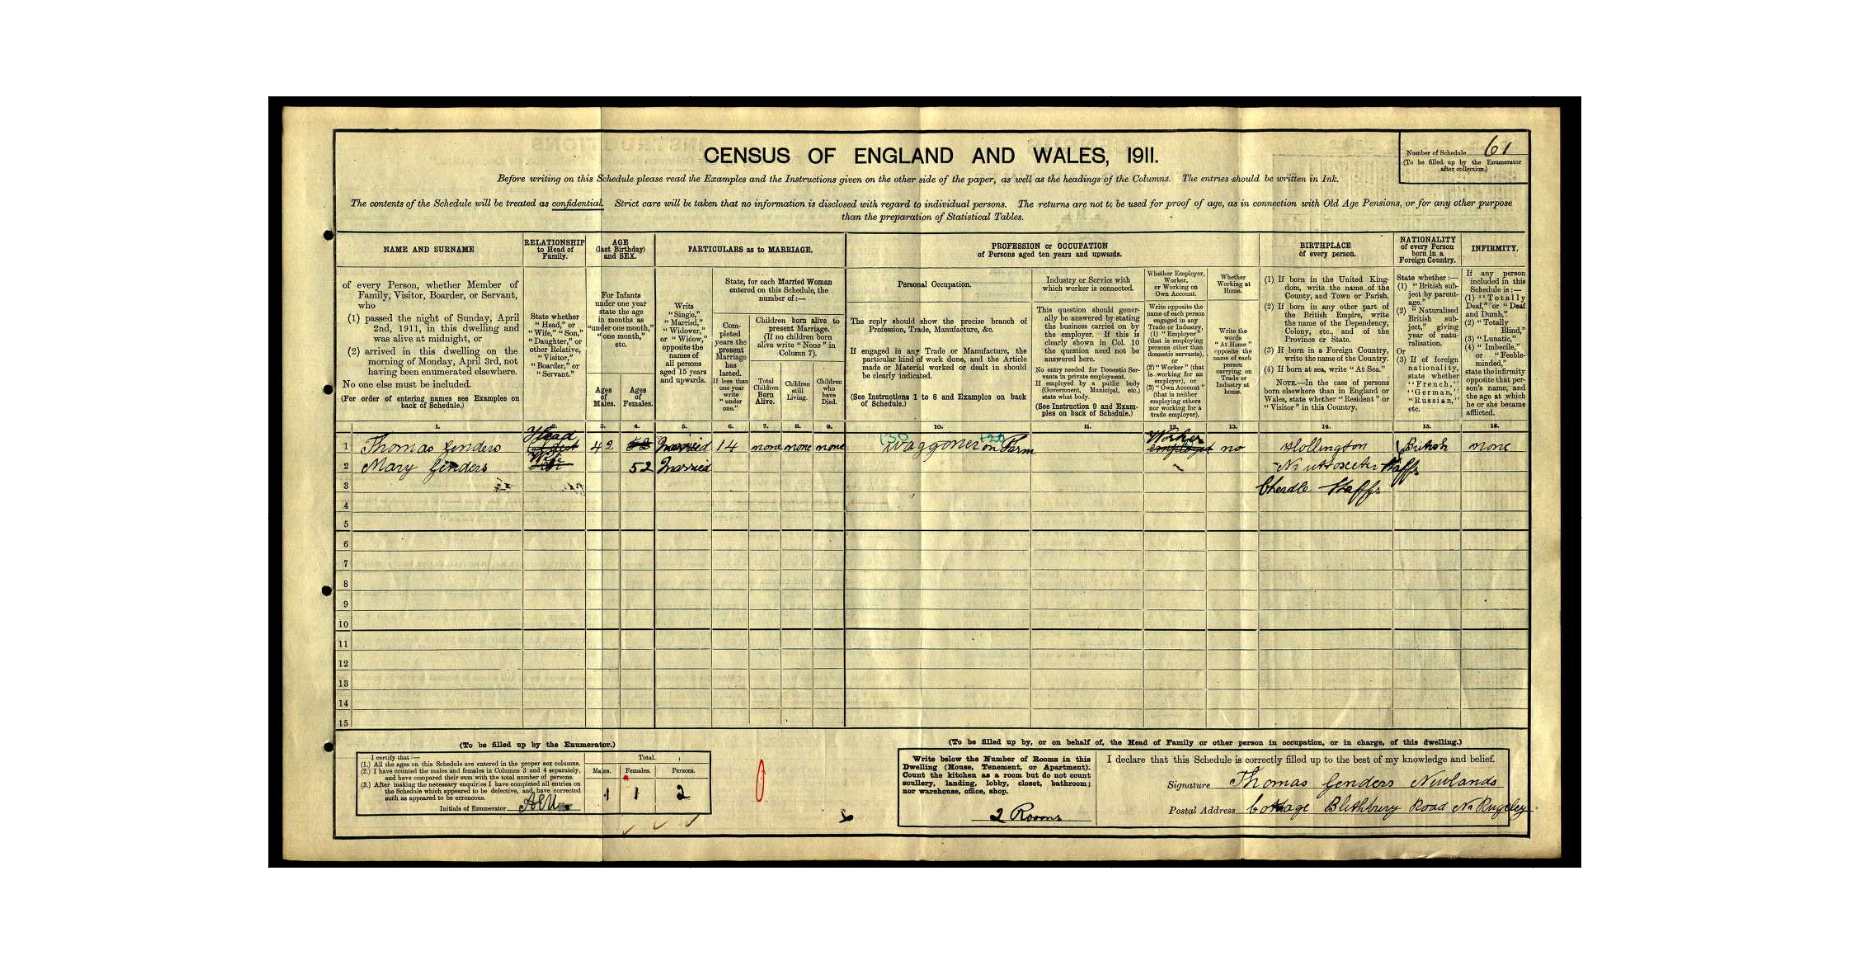 CENSUS OF ENGLAND AND WALES, 1911.
Number of Schedule 61
(To be filled up by the Enumerator
after collection.)
Before writing on this Schedule please read the Examples and the Instructions given on the other side of the paper, as well as the headings of the Columns. The entries should be written in Ink.
The contents of the Schedule will be treated as confidential. Strict care will be taken that no information is disclosed with regard to individual persons. The returns are not to be used for proof of age, as in connection with Old Age Pensions, or for any other purpose
than the preparation of Statistical Tables.
NAME AND SURNAME
of every Person, whether Member of
Family, Visitor, Boarder, or Servant,
who
(1) passed the night of Sunday, April
2nd, 1911, in this dwelling and
was alive at midnight, or
(2) arrived in this dwelling on the
morning of Monday, April 3rd, not
having been enumerated elsewhere.
No one else must be included.
(For order of entering names see Examples on
back of Schedule.)
RELATIONSHIP
to Head of
Family.
State whether
"Head," or
"Wife," "Son,"
"Daughter," or
other Relative,
"Visitor,"
"Boarder," or
"Servant."
AGE
(last Birthday)
and SEX.
For Infants
under one year
state the age
in months as
"under one month,"
"one month,"
etc.
Ages
of
Males.
Ages
of
Females.
PARTICULARS as to MARRIAGE.
Write
"Single,"
"Married,"
"Widower,"
or "Widow,"
opposite the
names of
all persons
aged 15 years
and upwards.
State, for each Married Woman
entered on this Schedule, the
number of:—
Com-
pleted
years the
present
Marriage
has
lasted.
If less than
one year
write
"under
one."
Children born alive to
present Marriage.
(If no children born
alive write "None" in
Column 7).
Total
Children
Born
Alive.
Children
still
Living.
Children
who
have
Died.
PROFESSION or OCCUPATION
of Persons aged ten years and upwards.
Personal Occupation.
The reply should show the precise branch of
Profession, Trade, Manufacture, &c.
If engaged in any Trade or Manufacture, the
particular kind of work done, and the Article
made or Material worked or dealt in should
be clearly indicated.
(See Instructions 1 to 8 and Examples on back
of Schedule.)
Industry or Service with
which worker is connected.
This question should gener-
ally be answered by stating
the business carried on by
the employer. If this is
clearly shown in Col. 10
the question need not be
answered here.
No entry needed for Domestic Ser-
vants in private employment.
If employed by a public body
(Government, Municipal, etc.)
state what body.
(See Instruction 9 and Exam-
ples on back of Schedule.)
Whether Employer,
Worker,
or Working on
Own Account.
Write opposite the
name of each person
engaged in any
Trade or Industry,
(1) "Employer"
(that is employing
persons other than
domestic servants),
or
(2) "Worker" (that
is working for an
employer), or
(3) "Own Account"
(that is neither
employing others
nor working for a
trade employer).
Whether
Working at
Home.
Write the
words
"At Home"
opposite the
name of each
person
carrying on
Trade or
Industry at
home.
BIRTHPLACE
of every person.
(1) If born in the United King-
dom, write the name of the
County, and Town or Parish.
(2) If born in any other part of
the British Empire, write
the name of the Dependency,
Colony, etc., and of the
Province or State.
(3) If born in a Foreign Country,
write the name of the Country.
(4) If born at sea, write "At Sea."
NOTE.—In the case of persons
born elsewhere than in England or
Wales, state whether "Resident" or
"Visitor" in this Country.
NATIONALITY
of every Person
born in a
Foreign Country.
State whether:—
(1) "British sub-
ject by parent-
age."
(2) "Naturalised
British sub-
ject," giving
year of natu-
ralisation.
Or
(3) If of foreign
nationality,
state whether
"French,"
"German,"
"Russian,"
etc.
INFIRMITY.
If any person
included in this
Schedule is:—
(1) "Totally
Deaf," or "Deaf
and Dumb,"
(2) "Totally
Blind,"
(3) "Lunatic,"
(4) "Imbecile,"
or "Feeble-
minded,"
state the infirmity
opposite that per-
son's name, and
the age at which
he or she became
afflicted.
1. 3. 4. 5. 6. 7. 8. 9. 10. 11. 12. 13. 14. 15. 16.
1 Thomas Genders Head 42 Married 14 none none none Waggoner on Farm Worker no Hollington British none
2 Mary Genders Wife 52 Married Nr Uttoxeter Staffs
3 Cheadle Staffs
4
5
6
7
8
9
10
11
12
13
14
15
(To be filled up by the Enumerator.)
I certify that:—
(1.) All the ages on this Schedule are entered in the proper sex columns.
(2.) I have counted the males and females in Columns 3 and 4 separately,
and have compared their sum with the total number of persons.
(3.) After making the necessary enquiries I have completed all entries on
the Schedule which appeared to be defective, and have corrected
such as appeared to be erroneous.
Initials of Enumerator
Total.
Males. Females. Persons.
1 1 2
(To be filled up by, or on behalf of, the Head of Family or other person in occupation, or in charge, of this dwelling.)
Write below the Number of Rooms in this
Dwelling (House, Tenement, or Apartment).
Count the kitchen as a room but do not count
scullery, landing, lobby, closet, bathroom;
nor warehouse, office, shop.
2 Rooms
I declare that this Schedule is correctly filled up to the best of my knowledge and belief.
Signature Thomas Genders Newlands
Postal Address Cottage Blithbury Road Nr Rugeley